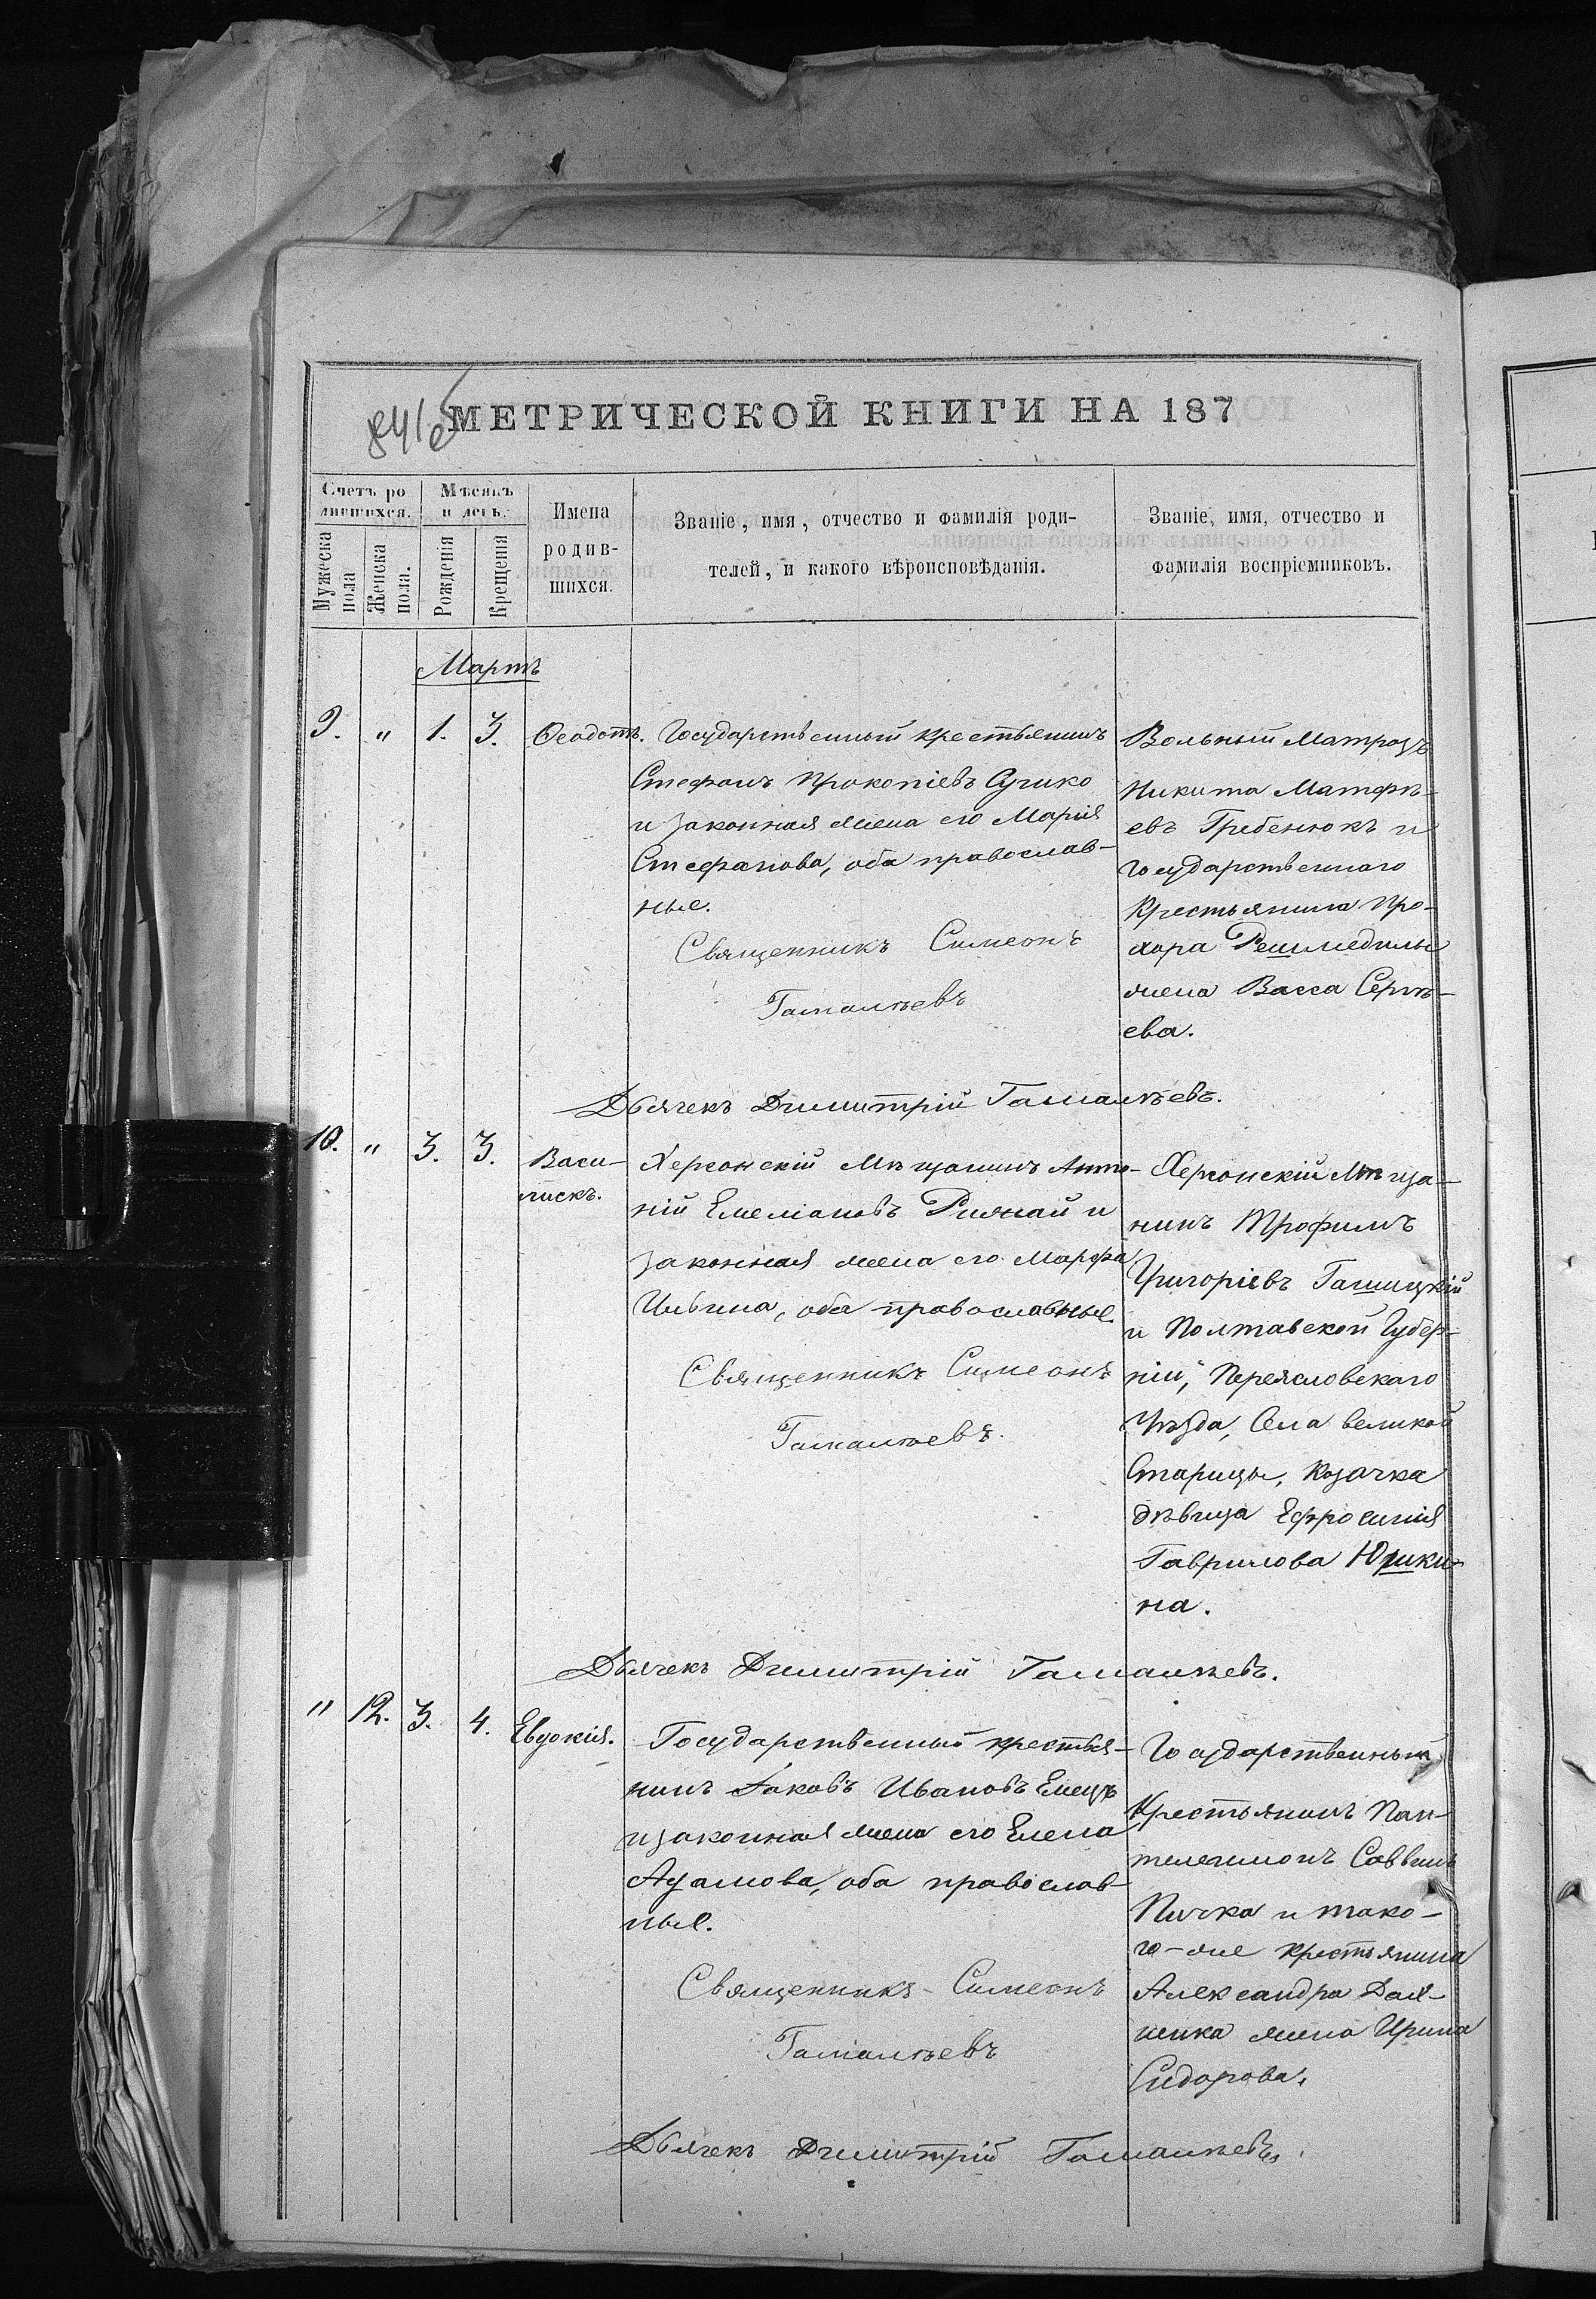 841
МЕТРИЧЕСКОЙ КНИГИ НА 187
Счетъ ро
дившихся.
Мѣсяцъ
и день.
Мужеска
пола
Женска
пола.
Рожденія
Крещенія
Имена
родив-
шихся.
Званіе, имя, отчество и фамилія роди-
телей, и какого вѣроисповѣданія.
Званіе, имя, отчество и
фамилія воспріемниковъ.
Мартъ
9. " 1. 3. Ѳеодотъ.
Государственный крестьянинъ
Стефанъ Прокопіевъ
и законная жена его Марія
Стефанова, оба православ-
ные.
Священникъ Симеонъ
Гамалѣевъ
Вольный Матрозъ
Никита Матфѣ-
евъ Гребенюкъ и
Государственнаго
Крестьянина Про-
хора
жена Васса Сергѣ-
ева.
Дьячекъ Димитрій Гамалѣевъ.
10. " 3. 3. Васи-
лискъ.
Херсонскій Мѣщанинъ Анто-
ній Емеліановъ и
законная жена его Марфа
Ильина, оба православные.
Священникъ Симеонъ
Гамалѣевъ.
Херсонскій Мѣща-
нинъ Трофимъ
Григоріевъ
и Полтавской Губер-
ніи, Переясловскаго
Уѣзда, Села великой
Старицы, Козачка
дѣвица Ефросинія
Гаврилова Юшки-
на.
Дьячекъ Димитрій Гамалѣевъ.
" 12. 3. 4. Евдокія.
Государственный крестья-
нинъ Іаковъ Ивановъ Емецъ
и законная жена его Елена
Адамова, оба православ-
ные.
Священникъ Симеонъ
Гамалѣевъ
Государственный
Крестьянинъ Пан-
телеимонъ Саввинъ
Пичка и тако-
го-же крестьянина
Александра
жена Ирина
Сидорова.
Дьячекъ Димитрій Гамалѣевъ.